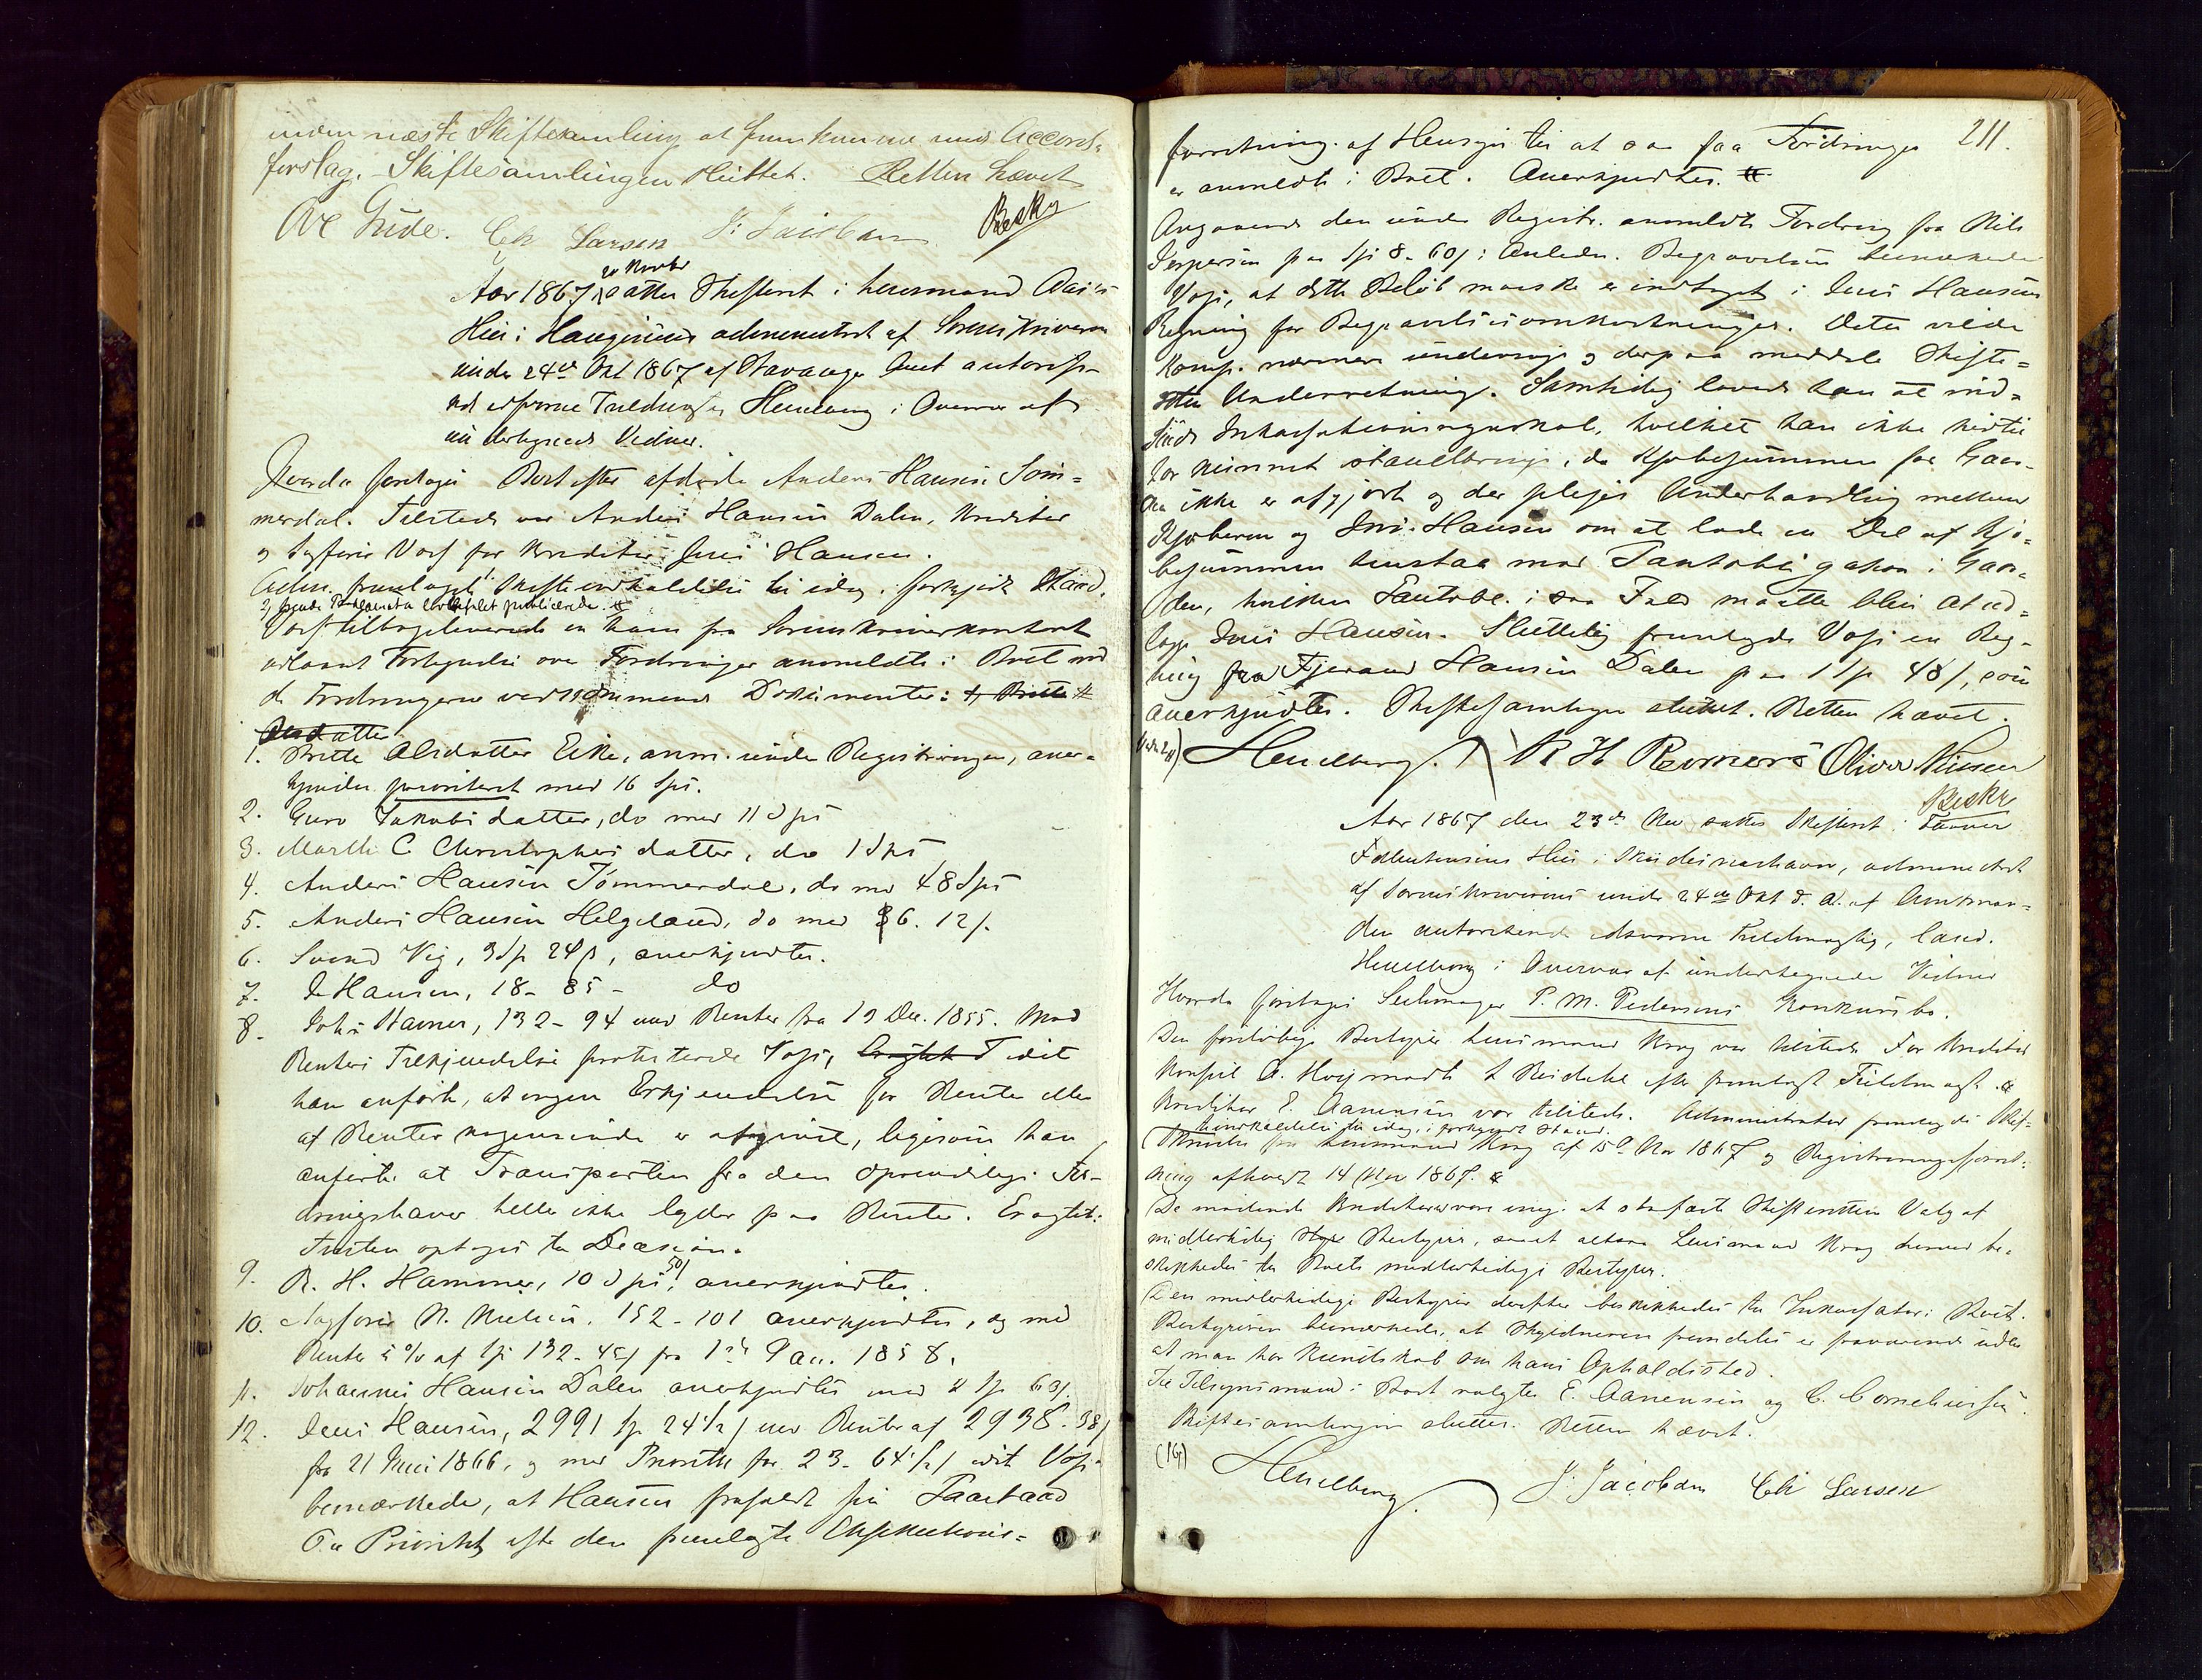 inden næste Skiftesamling at fremkomme med Accord-
forslag. - Skiftesamlingen sluttet. Retten hævet
Ove Gude. Ch Larsen J. Jacobsen Beskr
20 Novbr
Aar 1867 sattes Skifteret i Lensmand
Hus i Haugesund administreret af Sorenskriverens
under 24de Okt 1867 af Stavanger Amt autorise-
rede edsvorne Fuldmægtig Heuelberg i Overvær af
undertegnede Vidner.
Hvorda foretages Boet efter afdøde Anders Hansen Tøm-
merdal. Tilstede var Anders Hansen Dalen, Kreditor
og Sagfører Vogt for Kreditor Jens Hansen.
Adm. fremlagde Skifteindkaldelse til idag i forkyndt Stand.
Proklamata lovbefalet publicerede.
tilbageleverede en ham fra Sorenskriverkontoret
udlaant Fortegnelse over Fordringer anmeldte i Boet med
de Fordringerne vedkommende Dokumenter:
Olsdatter
1. Britte Olsdatter Eike, anm. under Registreringen, aner-
kjendes prioriteret med 16 Spd.
2. Guro Jakobsdatter, do med 11 Spd
3. Marthe C. Christophersdatter, do 1 Spd
4. Anders Hansen Tömmerdal, do med 48 Spd
5. Anders Hansen Helgeland, do med 36. 12 s.
6. Svend Vig, 3 Sp 24 s, anerkjendtes.
7. J Hansen, 18 - 85 - do
8. Johs Hamer, 132 - 94 med Renter fra 19 Dec. 1855. Mod
Renters Tilkjendelse protesterede Vogt, idet
han anførte, at ingen Erkjendelse for Rente eller
af Renter nogensinde er afgivet, ligesom han
anførte at Transporten fra den oprindelige For-
dringshaver heller ikke lyder paa Rente.
Tvisten optoges til Decision.
9. R. H. Hammer, 10 Spd 50 s anerkjendtes.
10. Sagfører N. Nielsen. 152 - 101 anerkjendtes, og med
Renter 5 % af Sp 132 - 45 s fra 1st Jan. 1858.
11. Johannes Hansen Dalen anerkjendtes med 4 Sp 63 s.
12. Jens Hansen, 2991 Sp 24 1/2 s med Renter af 2938. 38 s
fra 21 Juni 1866, og med Prioritet for 23 - 64 1/2 s idet Vogt
bemærkede, at Hansen frafaldt sin Paastand
Paa Prioritet efter den fremlagte Exekutions-
211.
forretning af Hensyn til at saa faa Fordringer
er anmeldte i Boet. Anerkjendtes.
Angaaende den under Registr. anmeldte Fordring fra Nils
Jespersen paa Spd 8 - 60 s i Anledn. Begravelsen bemærkede
Vogt, at dette Beløb maaske er indtaget i Jens Hansens
Regning for Begravelsesomkostninger. Dette vilde
Komp. nærmere undersøge og derpaa meddele Skifte-
retten Underretning. Samtidig lovede han at ind-
sende Inkassationsregnskab, hvilket han ikke hidtil
har kunnet istandbringe, da Kjøbesummen for Gaar-
den ikke er afgjort og der pleies Underhandling mellem
Kjøberen og Jens Hansen om at lade en Del af Kjø-
besummen henstaa mod Panteobligation i Gaar-
den, hvilken Panteobl. i saa Fald maatte blive at ud-
lægge Jens Hansen. Sluttelig fremlagde Vogt en Reg-
ning fra Tjerand Hansen Dalen paa 1 Sp 48 s, som
anerkjendtes. Skiftesamlingen sluttet. Retten hævet.
Heuelberg. R H Reimers Oliver Nilssen
Beskr
Aar 1867 den 23de Nov sattes Skifteret i
Hus i Skudesneshavn, administreret
af Sorenskriverens under 24de Okt d. A. af Amtman-
den autoriserede edsvorne Fuldmægtig, cand.
Heuelberg i Overvær af undertegnede Vidner
Hvorda foretoges Seilmager P. M. Pedersens Konkursbo.
Den foreløbige Bestyrer Lensmand Krag var tilstede For Kreditor
Konsul A. Kreditor E. Aanensen var tilstede. Administrator fremlagde Skif-
teindkaldelse til idag, i forkyndt Stand.
Skrivelse fra Lensmand Krag af 15de Nov 1867 og Registreringsforret-
ning afholdt 14 Nov 1867.
De mødende Kreditorer vare enige at overlade Skifteretten Valg af
midlertidig Bestyrer, saa at altsaa Lensmand Krag herved be-
skikkedes til Boets midlertidige Bestyrer.
Den midlertidige Bestyrer derefter beskikkedes til Inkassator i Boet.
Bestyreren bemærkede, at Skyldneren fremdeles er fraværende uden
at man har Kundskab om hans Opholdssted.
Til Tilsynsmænd i Boet valgtes E. Aanensen og C. Corneliussen.
Skiftesamlingen sluttet. Retten hævet.
(16)
Heuelberg. J. Jacobsen Ch Larsen